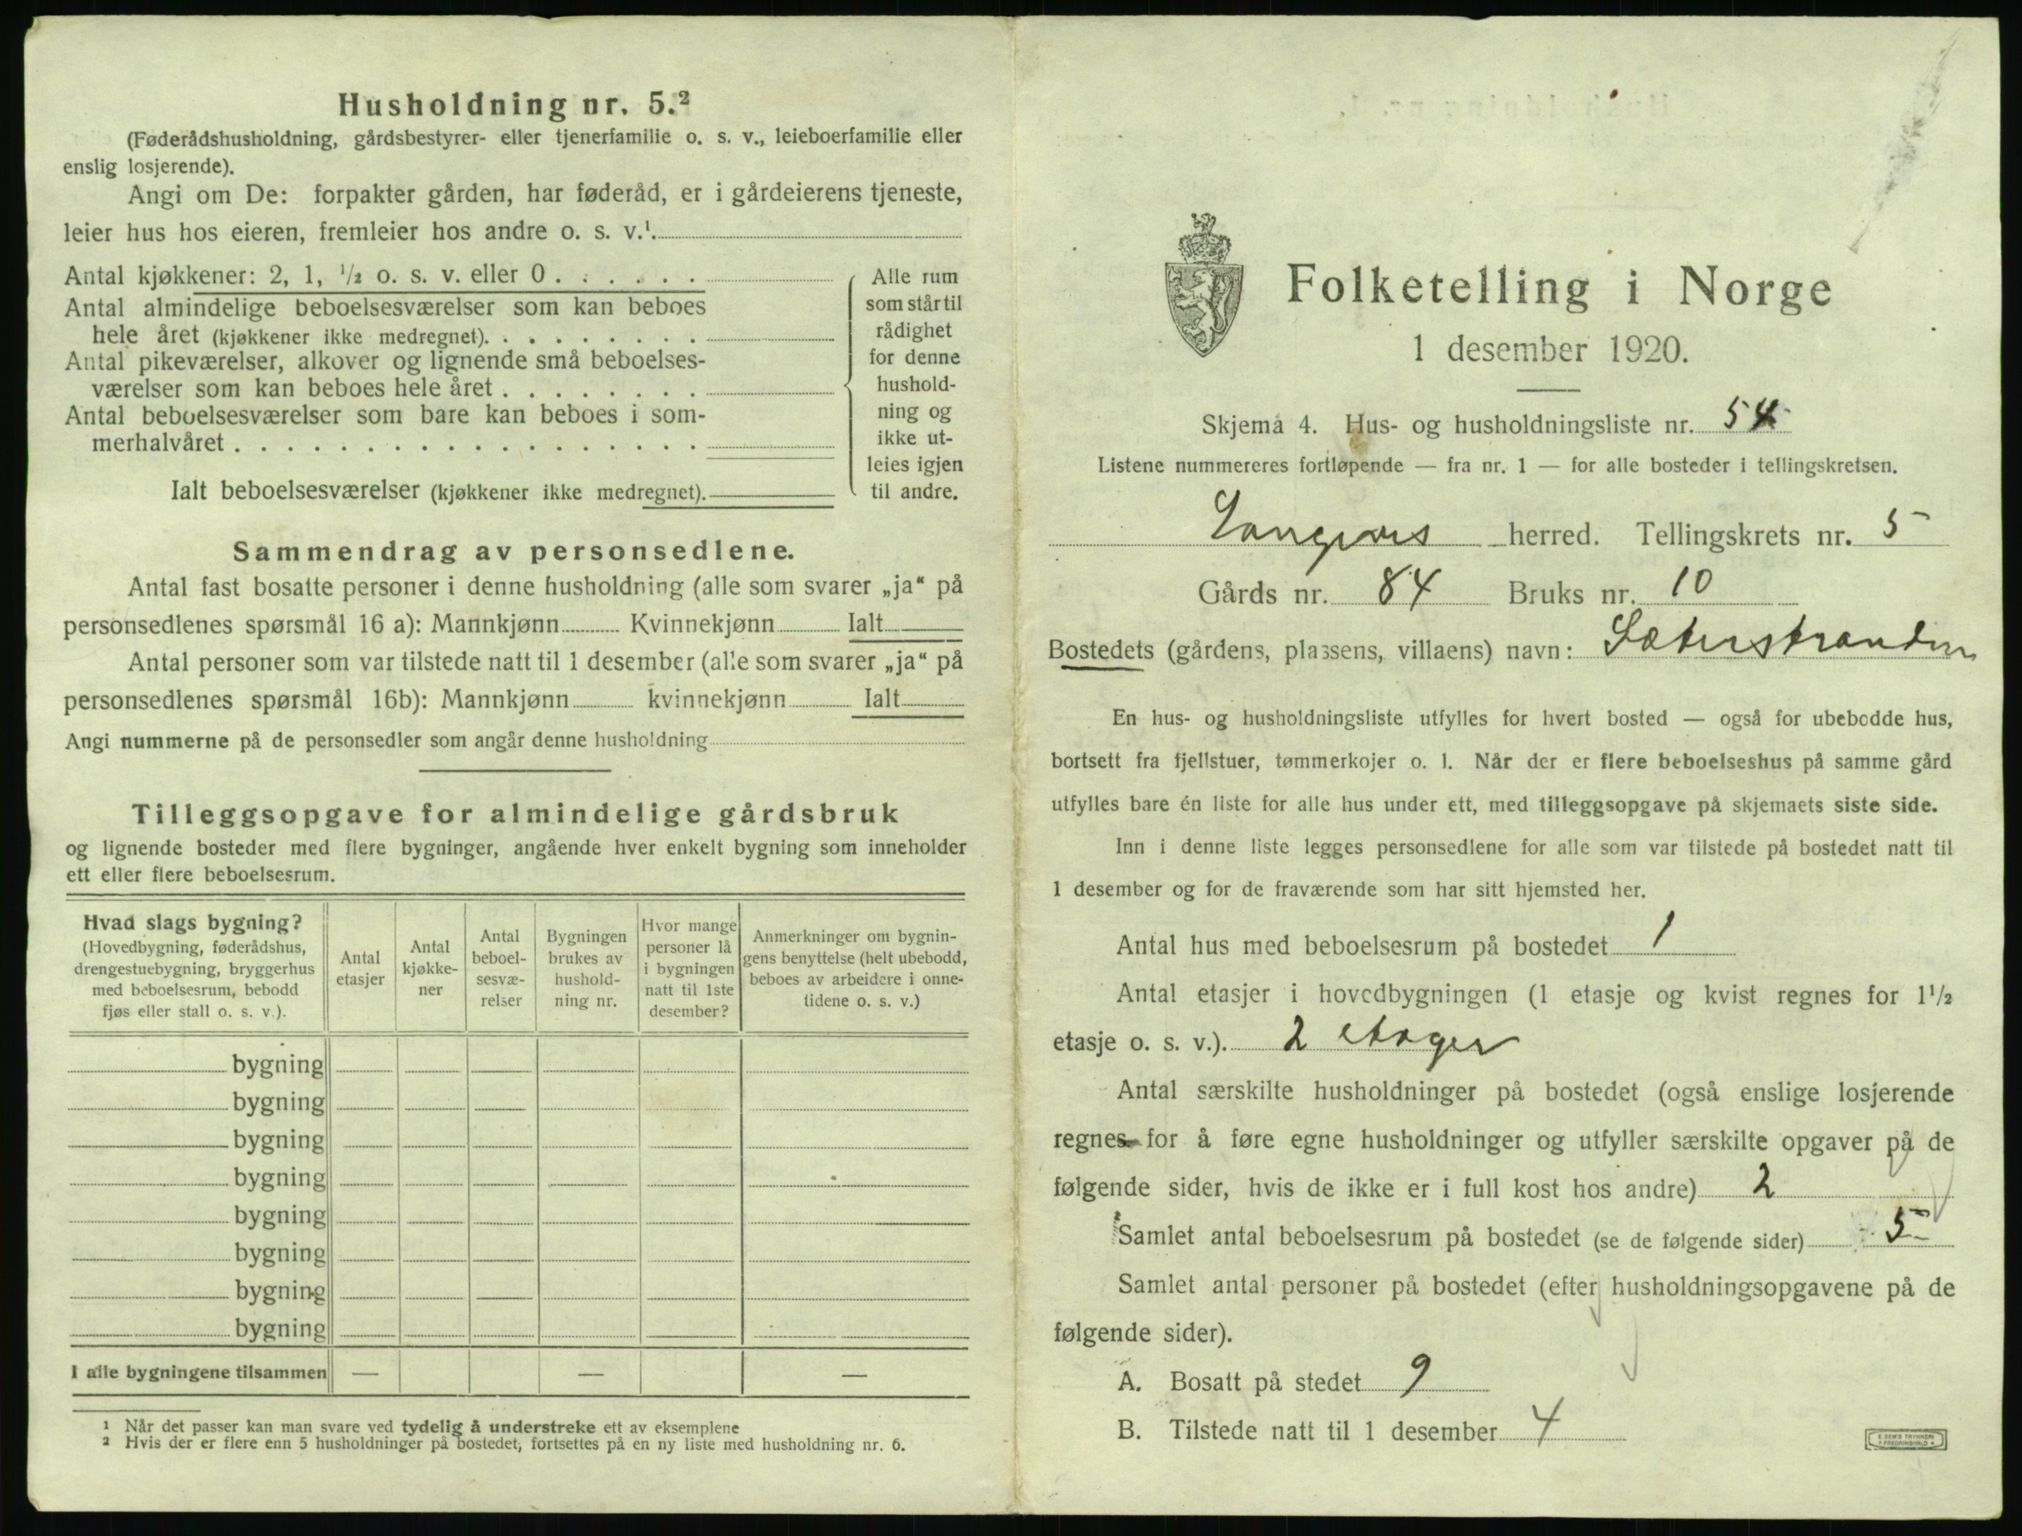 Husholdning nr. 5.²
(Føderådshusholdning, gårdsbestyrer- eller tjenerfamilie o. s. v., leieboerfamilie eller
enslig losjerende).
Angi om De: forpakter gården, har føderåd, er i gårdeierens tjeneste,
leier hus hos eieren, fremleier hos andre o. s. v.¹.
Antal kjøkkener: 2, 1, ½ o. s. v. eller 0
Antal almindelige beboelsesværelser som kan beboes
hele året (kjøkkener ikke medregnet).
Antal pikeværelser, alkover og lignende små beboelses-
værelser som kan beboes hele året
Antal beboelsesværelser som bare kan beboes i som-
merhalvåret
Ialt beboelsesværelser (kjøkkener ikke medregnet).
Alle rum
som står til
rådighet
for denne
hushold-
ning og
ikke ut-
leies igjen
til andre.
Sammendrag av personsedlene.
Antal fast bosatte personer i denne husholdning (alle som svarer „ja“ på
personsedlenes spørsmål 16 a): Mannkjønn Kvinnekjønn Ialt
Antal personer som var tilstede natt til 1 desember (alle som svarer „ja“ på
personsedlenes spørsmål 16b): Mannkjønn kvinnekjønn Ialt
Angi nummerne på de personsedler som angår denne husholdning
Tilleggsopgave for almindelige gårdsbruk
og lignende bosteder med flere bygninger, angående hver enkelt bygning som inneholder
ett eller flere beboelsesrum.
Hvad slags bygning?
(Hovedbygning, føderådshus,
drengestuebygning, bryggerhus
med beboelsesrum, bebodd
fjøs eller stall o. s. v.).
Antal
etasjer
Antal
kjøkke-
ner
Antal
beboel-
sesvæ-
relser
Bygningen
brukes av
hushold-
ning nr.
Hvor mange
personer lå
i bygningen
natt til 1ste
desember?
Anmerkninger om bygnin-
gens benyttelse (helt ubebodd,
beboes av arbeidere i onne-
tidene o. s. v.)
bygning
bygning
bygning
bygning
bygning
bygning
bygning
bygning
I alle bygningene tilsammen — — —
¹ Når det passer kan man svare ved tydelig å understreke ett av eksemplene
² Hvis der er flere enn 5 husholdninger på bostedet, fortsettes på en ny liste med husholdning nr. 6.
Folketelling i Norge
1 desember 1920.
Skjema 4. Hus- og husholdningsliste nr. 54
Listene nummereres fortløpende — fra nr. 1 — for alle bosteder i tellingskretsen.
herred. Tellingskrets nr. 5
Gårds nr. 84 Bruks nr. 10
Bostedets (gårdens, plassens, villaens) navn: Sæterstranden
En hus- og husholdningsliste utfylles for hvert bosted — også for ubebodde hus,
bortsett fra fjellstuer, tømmerkojer o. l. Når der er flere beboelseshus på samme gård
utfylles bare én liste for alle hus under ett, med tilleggsopgave på skjemaets siste side.
Inn i denne liste legges personsedlene for alle som var tilstede på bostedet natt til
1 desember og for de fraværende som har sitt hjemsted her.
Antal hus med beboelsesrum på bostedet 1
Antal etasjer i hovedbygningen (1 etasje og kvist regnes for 1½
etasje o. s. v.). 2 etager
Antal særskilte husholdninger på bostedet (også enslige losjerende
regnes for å føre egne husholdninger og utfyller særskilte opgaver på de
følgende sider, hvis de ikke er i full kost hos andre) 2
Samlet antal beboelsesrum på bostedet (se de følgende sider) 5
Samlet antal personer på bostedet (efter husholdningsopgavene på de
følgende sider).
A. Bosatt på stedet 9
B. Tilstede natt til 1 desember 4